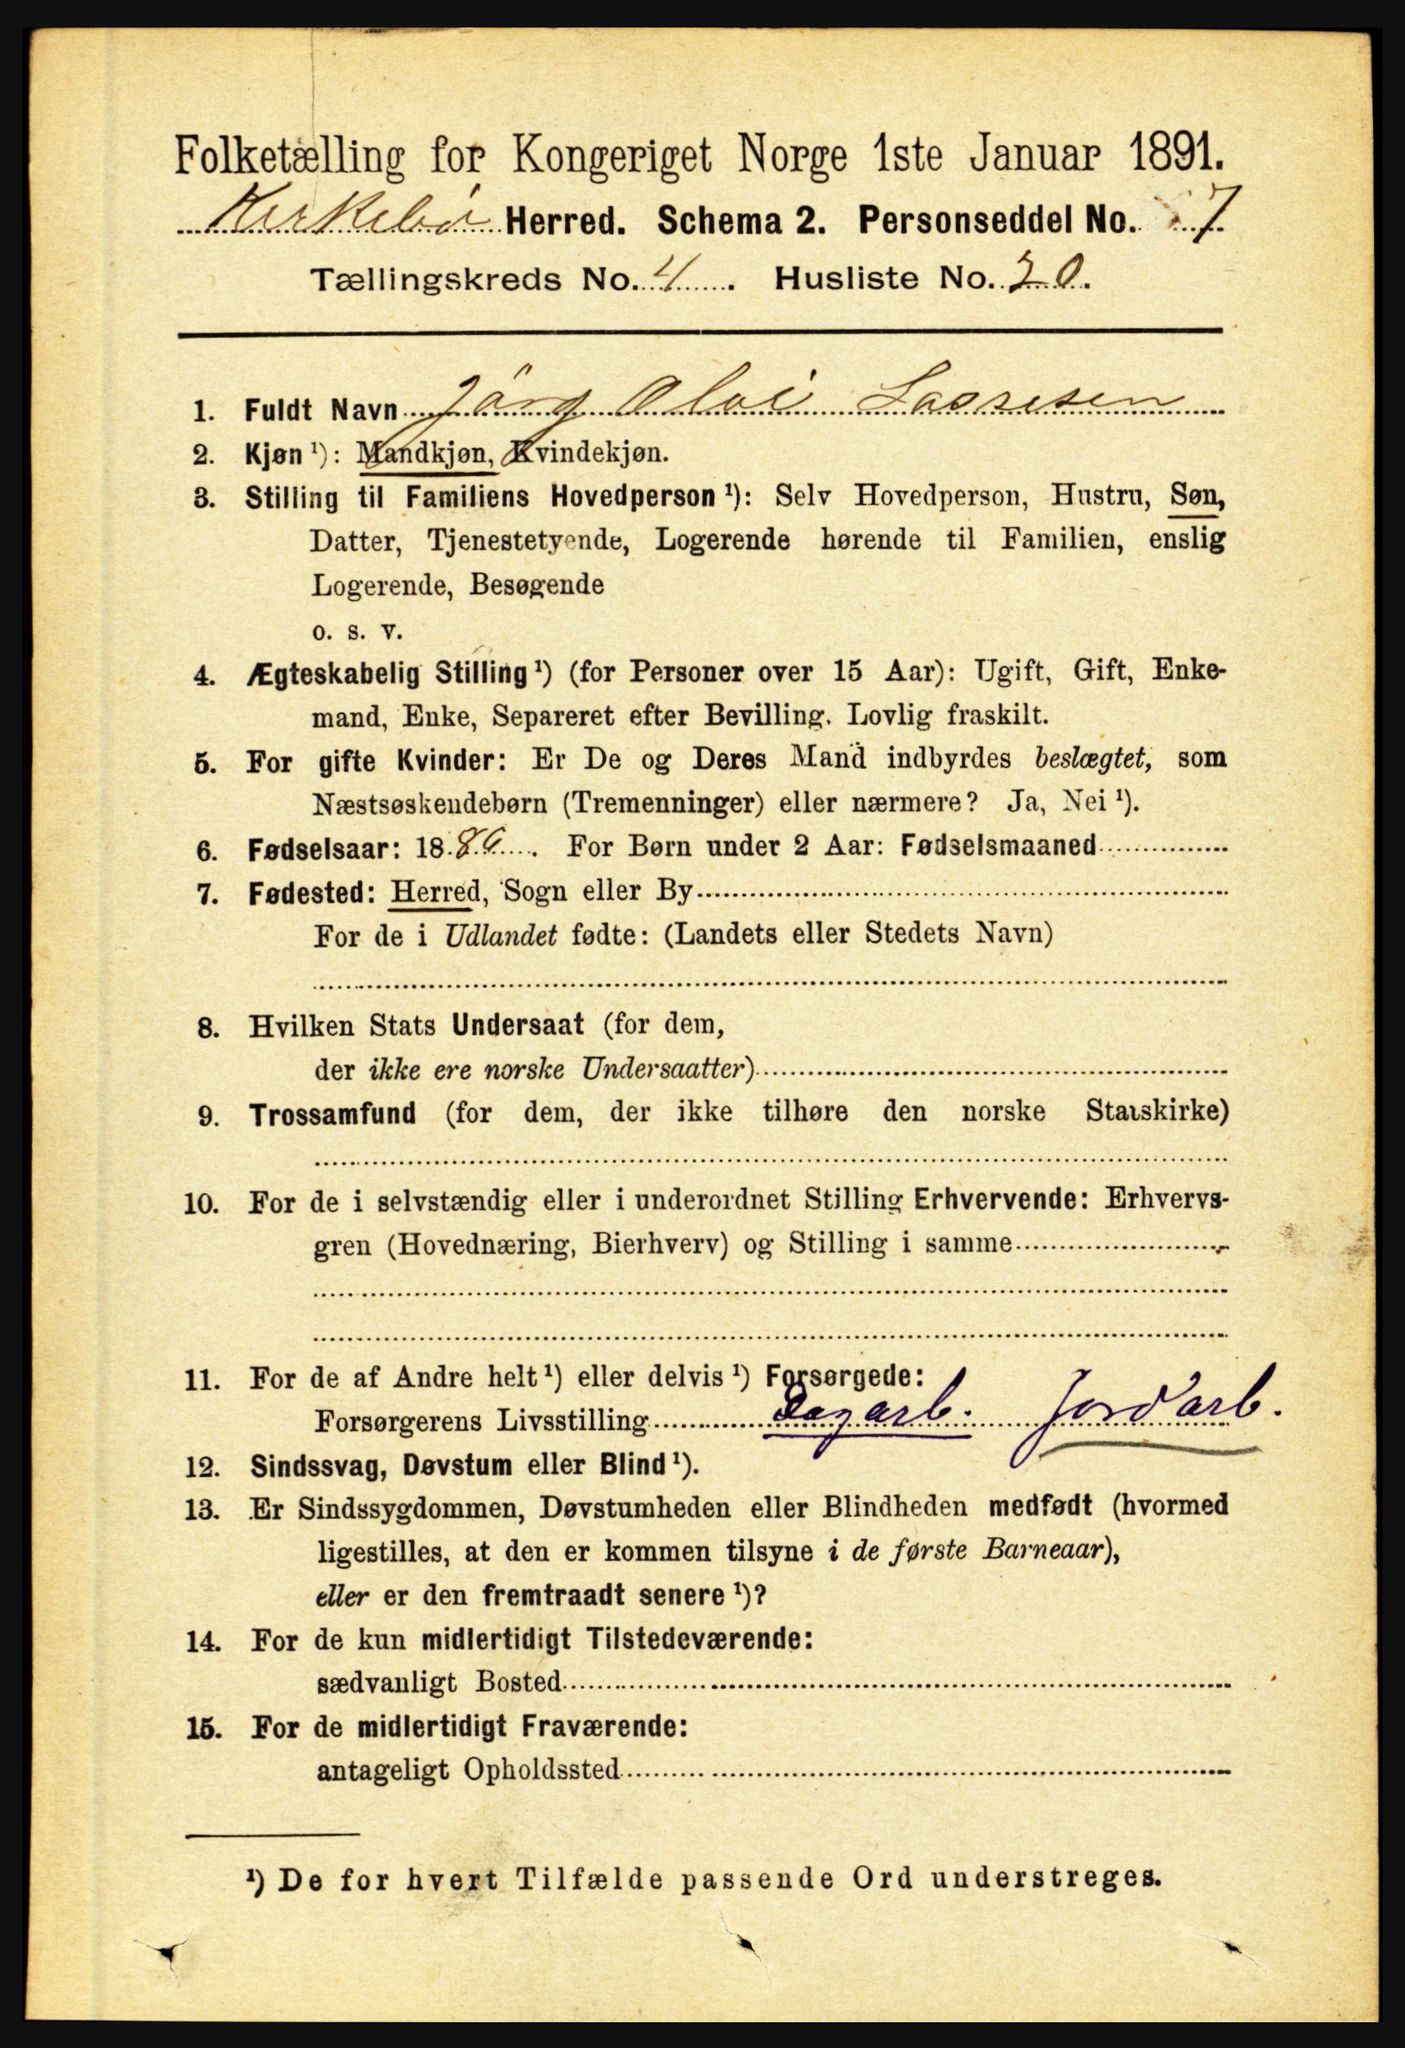 Folketælling for Kongeriget Norge 1ste Januar 1891.
Kirkebø Herred. Schema 2. Personseddel No. 7
Tællingskreds No. 4. Husliste No. 20.
1. Fuldt Navn Jörg Olai Lassesen
2. Kjøn ¹): Mandkjøn, Kvindekjøn.
3. Stilling til Familiens Hovedperson ¹): Selv Hovedperson, Hustru, Søn,
Datter, Tjenestetyende, Logerende hørende til Familien, enslig
Logerende, Besøgende
o. s. v.
4. Ægteskabelig Stilling ¹) (for Personer over 15 Aar): Ugift, Gift, Enke-
mand, Enke, Separeret efter Bevilling. Lovlig fraskilt.
5. For gifte Kvinder: Er De og Deres Mand indbyrdes beslægtet, som
Næstsøskendebørn (Tremenninger) eller nærmere? Ja, Nei ¹).
6. Fødselsaar: 18 . For Børn under 2 Aar: Fødselsmaaned
7. Fødested: Herred, Sogn eller By
For de i Udlandet fødte: (Landets eller Stedets Navn)
8. Hvilken Stats Undersaat (for dem,
der ikke ere norske Undersaatter)
9. Trossamfund (for dem, der ikke tilhøre den norske Statskirke)
10. For de i selvstændig eller i underordnet Stilling Erhvervende: Erhvervs-
gren (Hovednæring, Bierhverv) og Stilling i samme
11. For de af Andre helt ¹) eller delvis ¹) Forsørgede:
Forsørgerens Livsstilling Dagarb. Jordarb.
12. Sindssvag, Døvstum eller Blind ¹).
13. Er Sindssygdommen, Døvstumheden eller Blindheden medfødt (hvormed
ligestilles, at den er kommen tilsyne i de første Barneaar),
eller er den fremtraadt senere ¹)?
14. For de kun midlertidigt Tilstedeværende:
sædvanligt Bosted
15. For de midlertidigt Fraværende:
antageligt Opholdssted
¹) De for hvert Tilfælde passende Ord understreges.